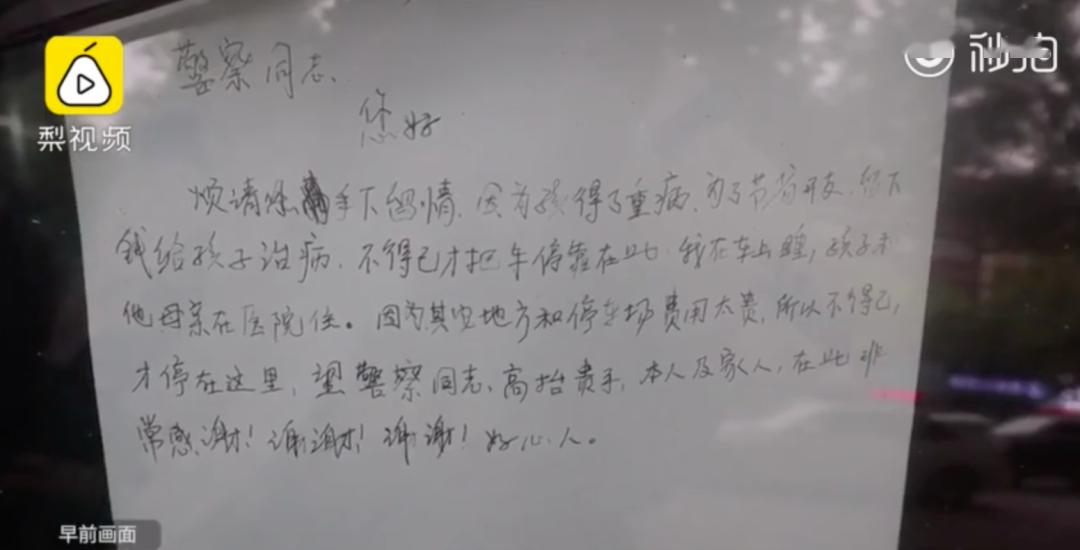 梨视频
秒拍
警察同志
您好
烦请您手下留情,因为孩得了重病,为了节省开支,留下
钱给孩子治病,不得已才把车停靠在此,我在车上睡,孩子和
他母亲在医院住。因为其他地方和停车场费用太贵,所以不得已,
才停在这里,望警察同志、高抬贵手,本人及家人,在此非
常感谢!谢谢!谢谢!好心人。
早前画面